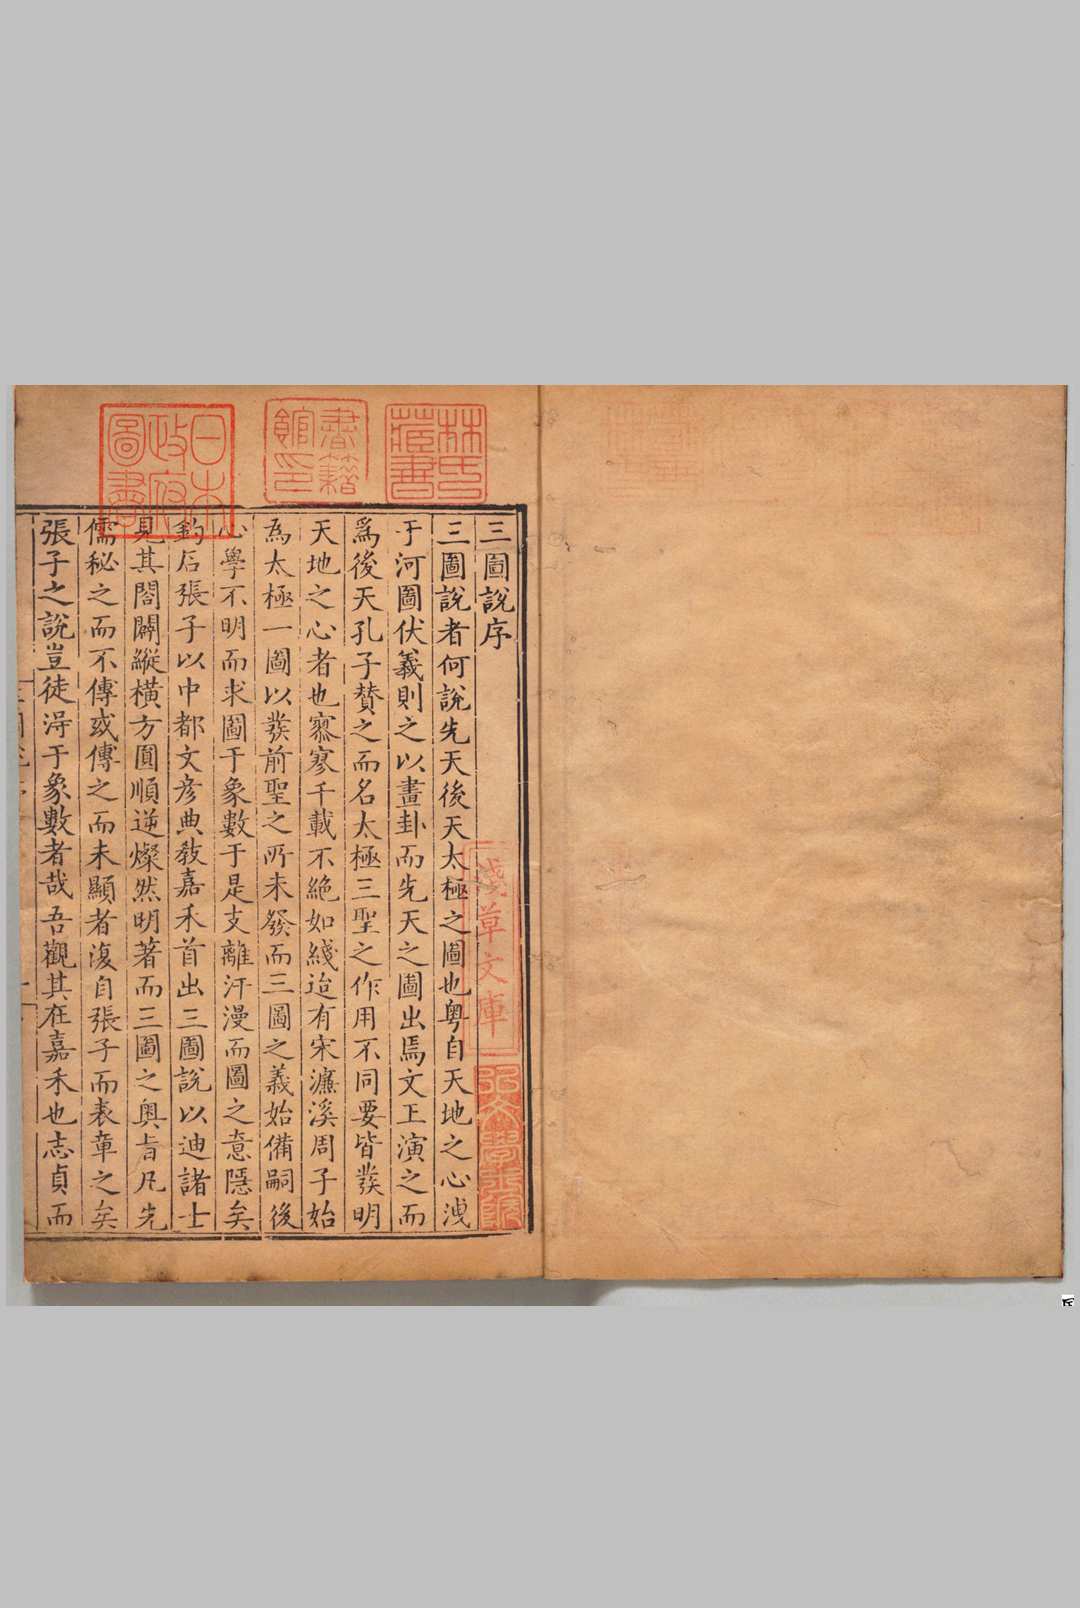 三圖說序
三圖說者何說先天後天太極之圖也粤自天地之心洩
于河圖伏羲則之以畫卦而先天之圖出焉文王演之而
爲後天孔子賛之而名太極三聖之作用不同要皆發明
天地之心者也寥寥千載不絕如綫迨有宋濂溪周子始
為太極一圖以發前聖之所未發而三圖之義始備嗣後
心學不明而求圖于象數于是支離汗漫而圖之意隱矣
鈞石張子以中都文彦典敎嘉禾首出三圖說以迪諸士
見其閤闢縱橫方圓順逆燦然明著而三圖之奧旨凡先
儒秘之而不傳或傳之而未顯者復自張子而表章之矣
張子之說豈徒淂于象數者哉吾觀其在嘉禾也志貞而
林氏藏書
書籍館印
日本政府圖書
淺草文庫